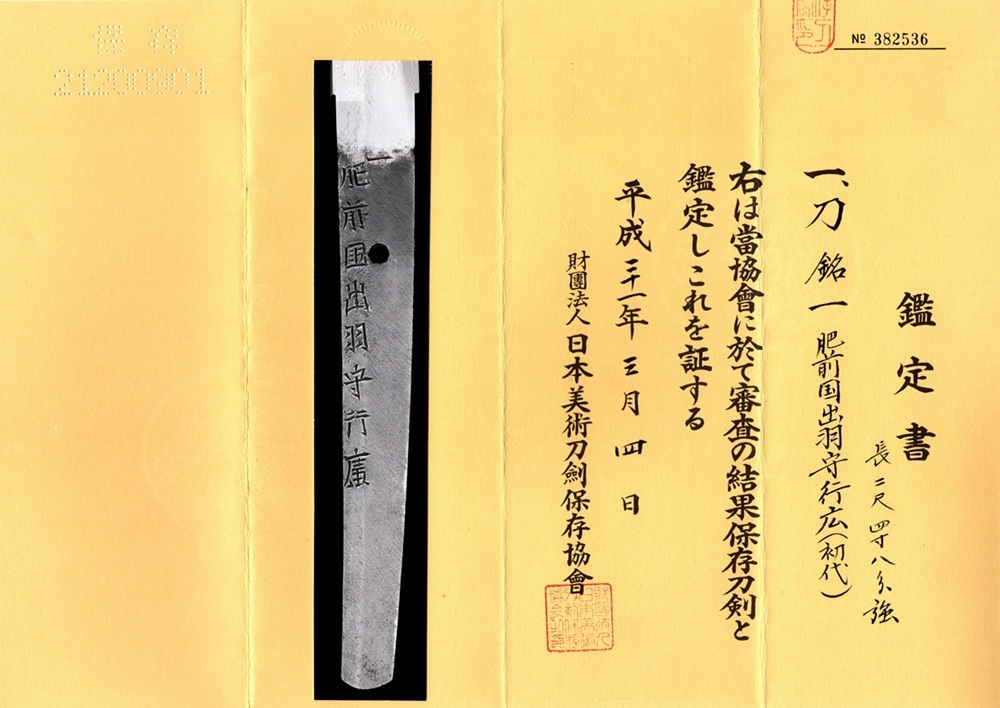 № 382536
鑑定書
一、刀 銘 一 肥前国出羽守行広(初代)
長二尺四寸八分強
右は當協會に於て審査の結果保存刀剣と
鑑定しこれを証する
平成三十一年三月四日
財團法人日本美術刀劍保存協會
一
肥前国出羽守行廣
保存
21200901